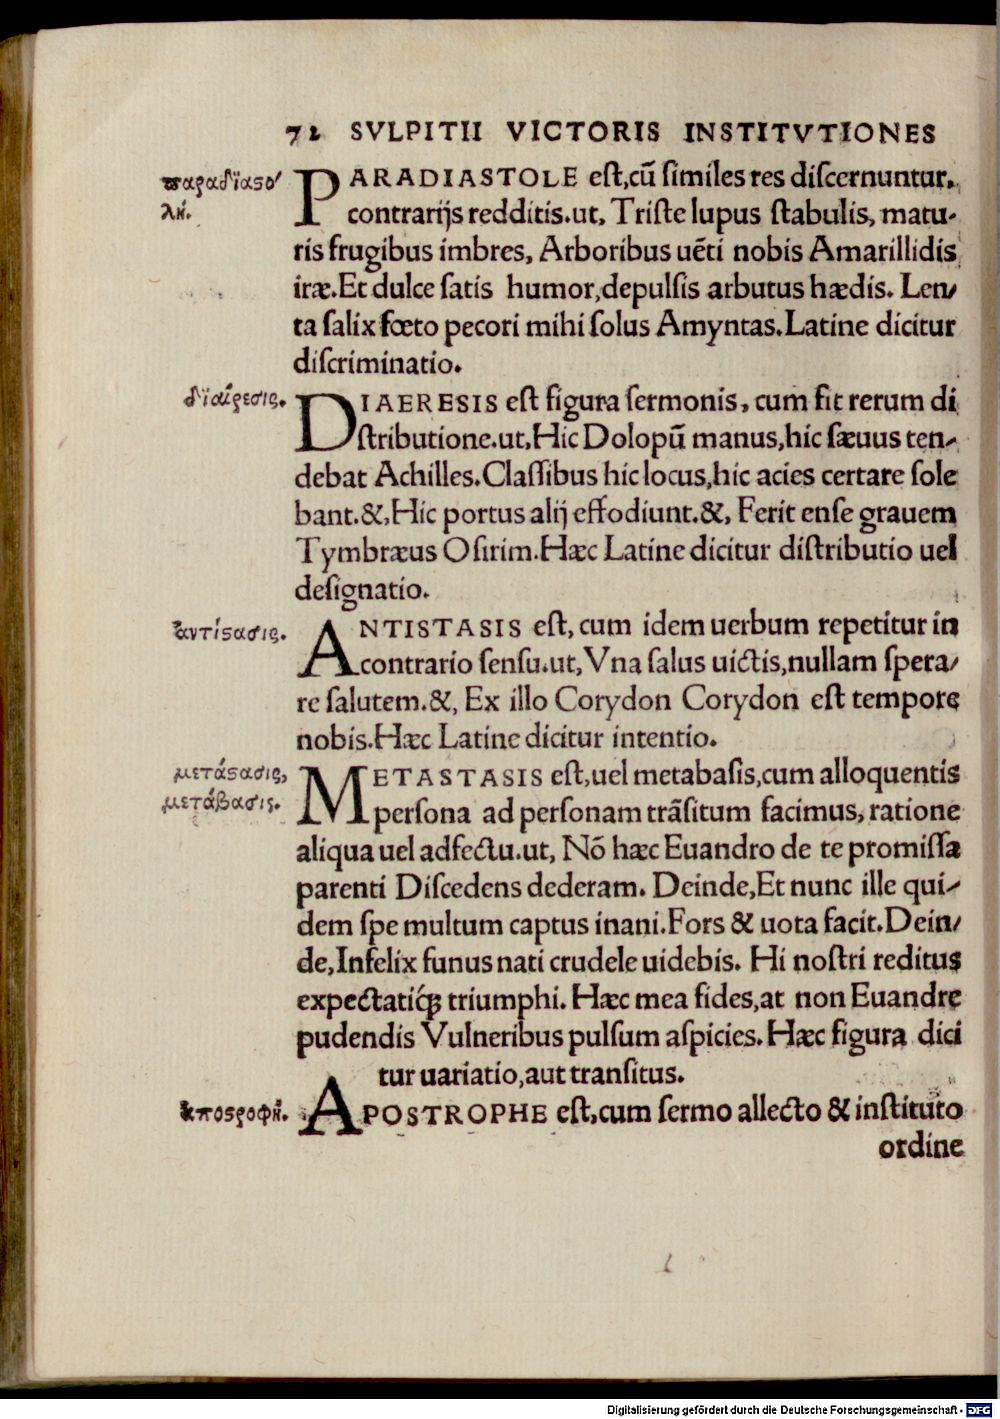 72 SVLPITII VICTORIS INSTITVTIONES
παραδιαστο/
λή.
PARADIASTOLE eſt,cū ſimiles res diſcernuntur,
contrarijs redditis.ut, Triſte lupus ſtabulis, matu-
ris frugibus imbres, Arboribus uēti nobis Amarillidis
iræ.Et dulce ſatis humor,depulſis arbutus hædis. Len/
ta ſalix fœto pecori mihi ſolus Amyntas.Latine dicitur
diſcriminatio.
διαίρεσις.
DIAERESIS eſt figura ſermonis, cum fit rerum di
ſtributione.ut,Hic Dolopū manus,hic ſæuus ten-
debat Achilles.Claſſibus hic locus,hic acies certare ſole
bant.&,Hic portus alij effodiunt.&, Ferit enſe grauem
Tymbræus Oſirim.Hæc Latine dicitur diſtributio uel
deſignatio.
ἀντίστασις.
ANTISTASIS eſt, cum idem uerbum repetitur in
contrario ſenſu.ut,Vna ſalus uictis,nullam ſpera/
re ſalutem.&, Ex illo Corydon Corydon eſt tempore
nobis.Hæc Latine dicitur intentio.
μετάστασις,
μετάβασις.
METASTASIS eſt,uel metabaſis,cum alloquentis
perſona ad perſonam trāſitum facimus, ratione
aliqua uel adfectu.ut, Nō hæc Euandro de te promiſſa
parenti Diſcedens dederam. Deinde,Et nunc ille qui-
dem ſpe multum captus inani.Fors & uota facit.Dein/
de,Infelix funus nati crudele uidebis. Hi noſtri reditus
expectatiq́ꝫ triumphi. Hæc mea fides,at non Euandre
pudendis Vulneribus pulſum aſpicies.Hæc figura dici
tur uariatio,aut tranſitus.
ἀποστροφή.
APOSTROPHE eſt,cum ſermo allecto & inſtituto
ordine
Digitalisierung gefördert durch die Deutsche Forschungsgemeinschaft - DFG